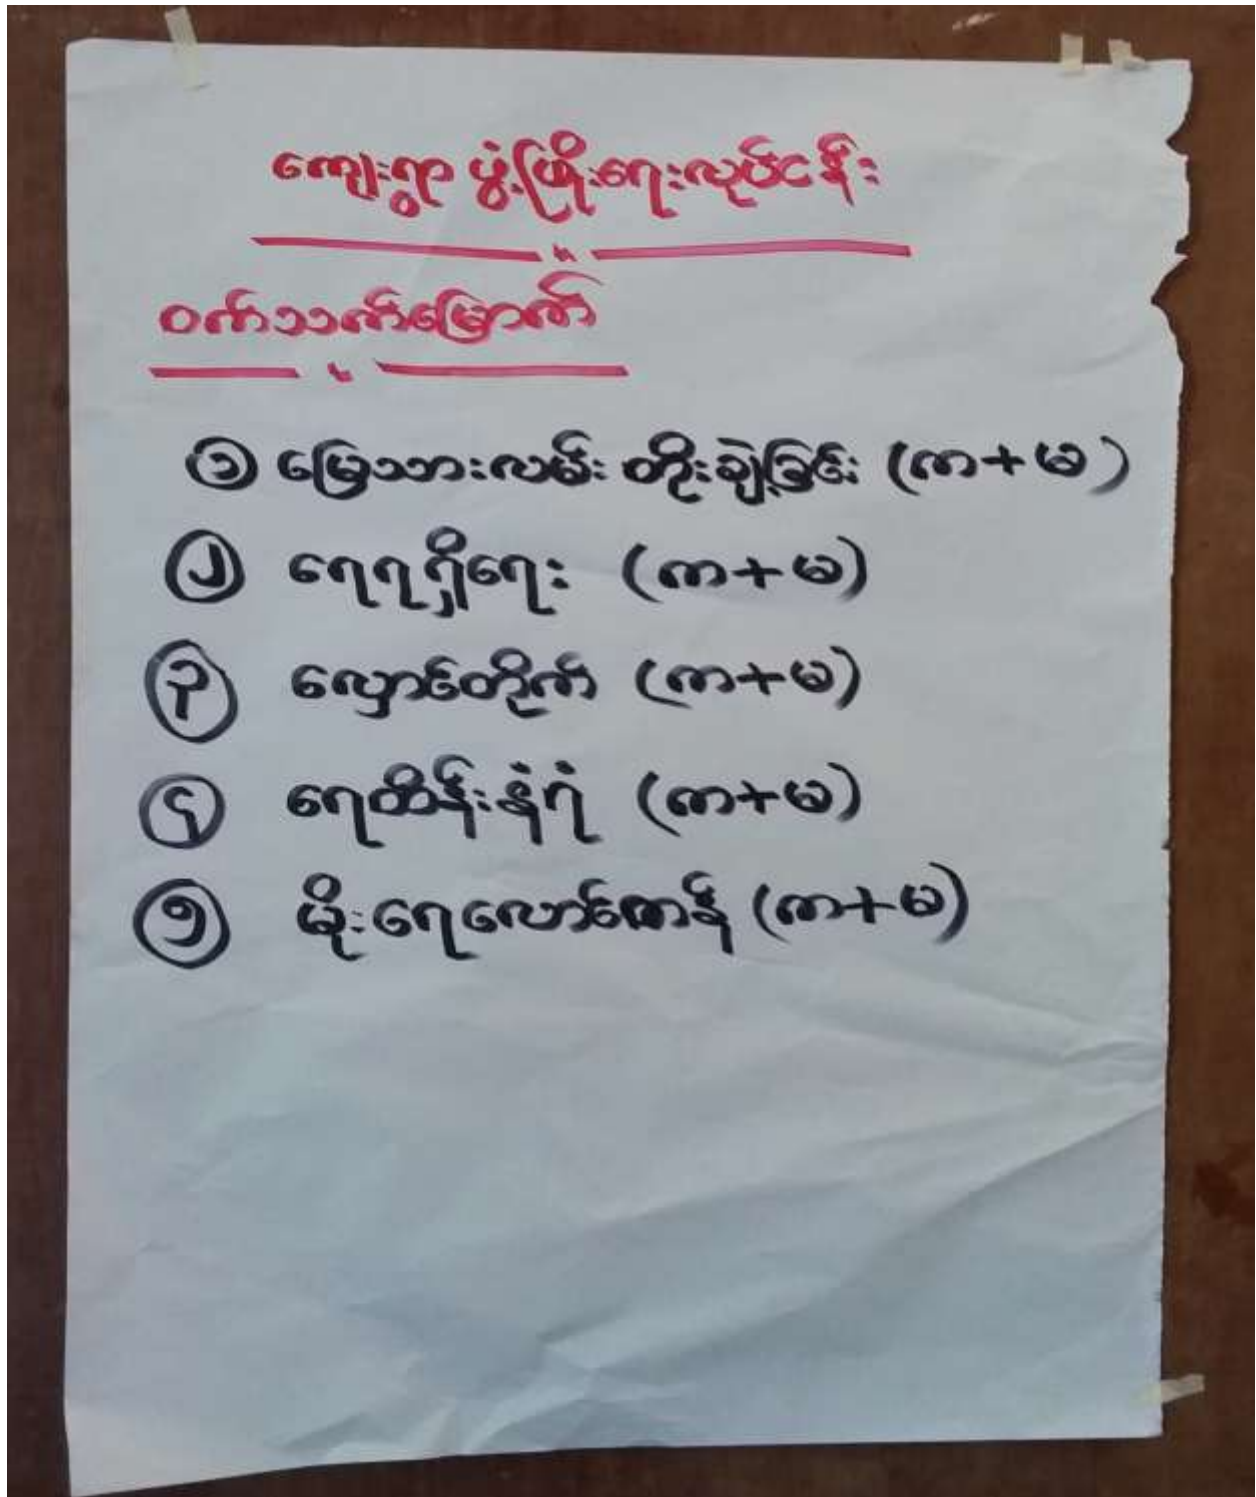 ကျေးရွာ ဖွံ့ဖြိုးရေးလုပ်ငန်း
ဝက်သက်မြောက်
၁ မြေသားလမ်း တိုးချဲ့ခြင်း (က+မ)
၂ ရေရရှိရေး (က+မ)
၃ လှောင်တိုက် (က+မ)
၄ ရေထိန်းနံရံ (က+မ)
၅ မိုးရေလောင်ကန် (က+မ)